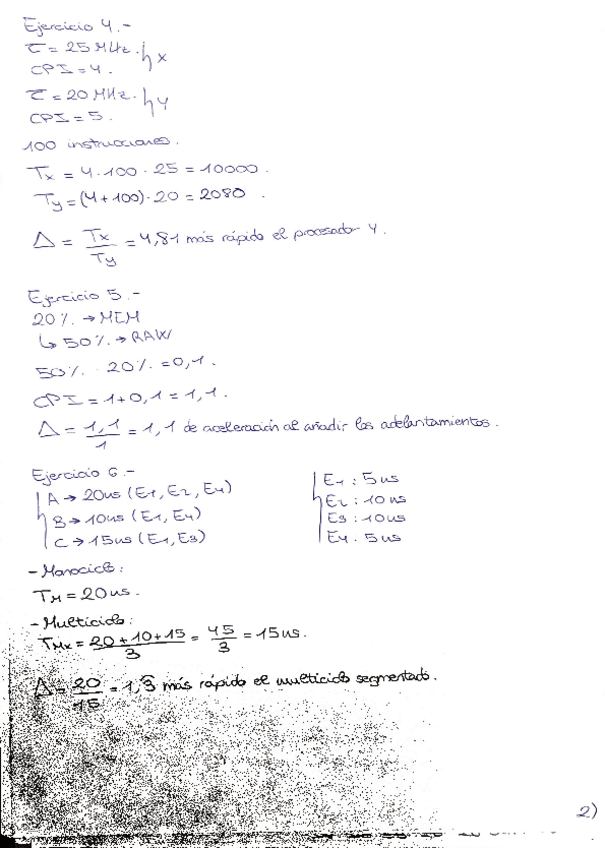 Ejercicio 4.-
τ = 25 MHz.
CPI = 4. } x
τ = 20 MHz.
CPI = 5. } y
100 instrucciones.
Tx = 4·100·25 = 10000.
Ty = (4+100)·20 = 2080.
Δ = Tx/Ty = 4,81 más rápido el procesador Y.
Ejercicio 5.-
20% → MEM
↳ 50% → RAW
50% · 20% = 0,1.
CPI = 1+0,1 = 1,1.
Δ = 1,1/1 = 1,1 de aceleración al añadir los adelantamientos.
Ejercicio 6.-
A → 20ns (E1, E2, E4)
B → 10ns (E1, E4)
C → 15ns (E1, E3)
E1: 5ns
E2: 10ns
E3: 10ns
E4: 5ns
- Monociclo:
TM = 20ns.
- Multiciclo:
TMx = 20+10+15/3 = 45/3 = 15ns.
Δ = 20/15 = 1,3 más rápido el multiciclo segmentado.
2)